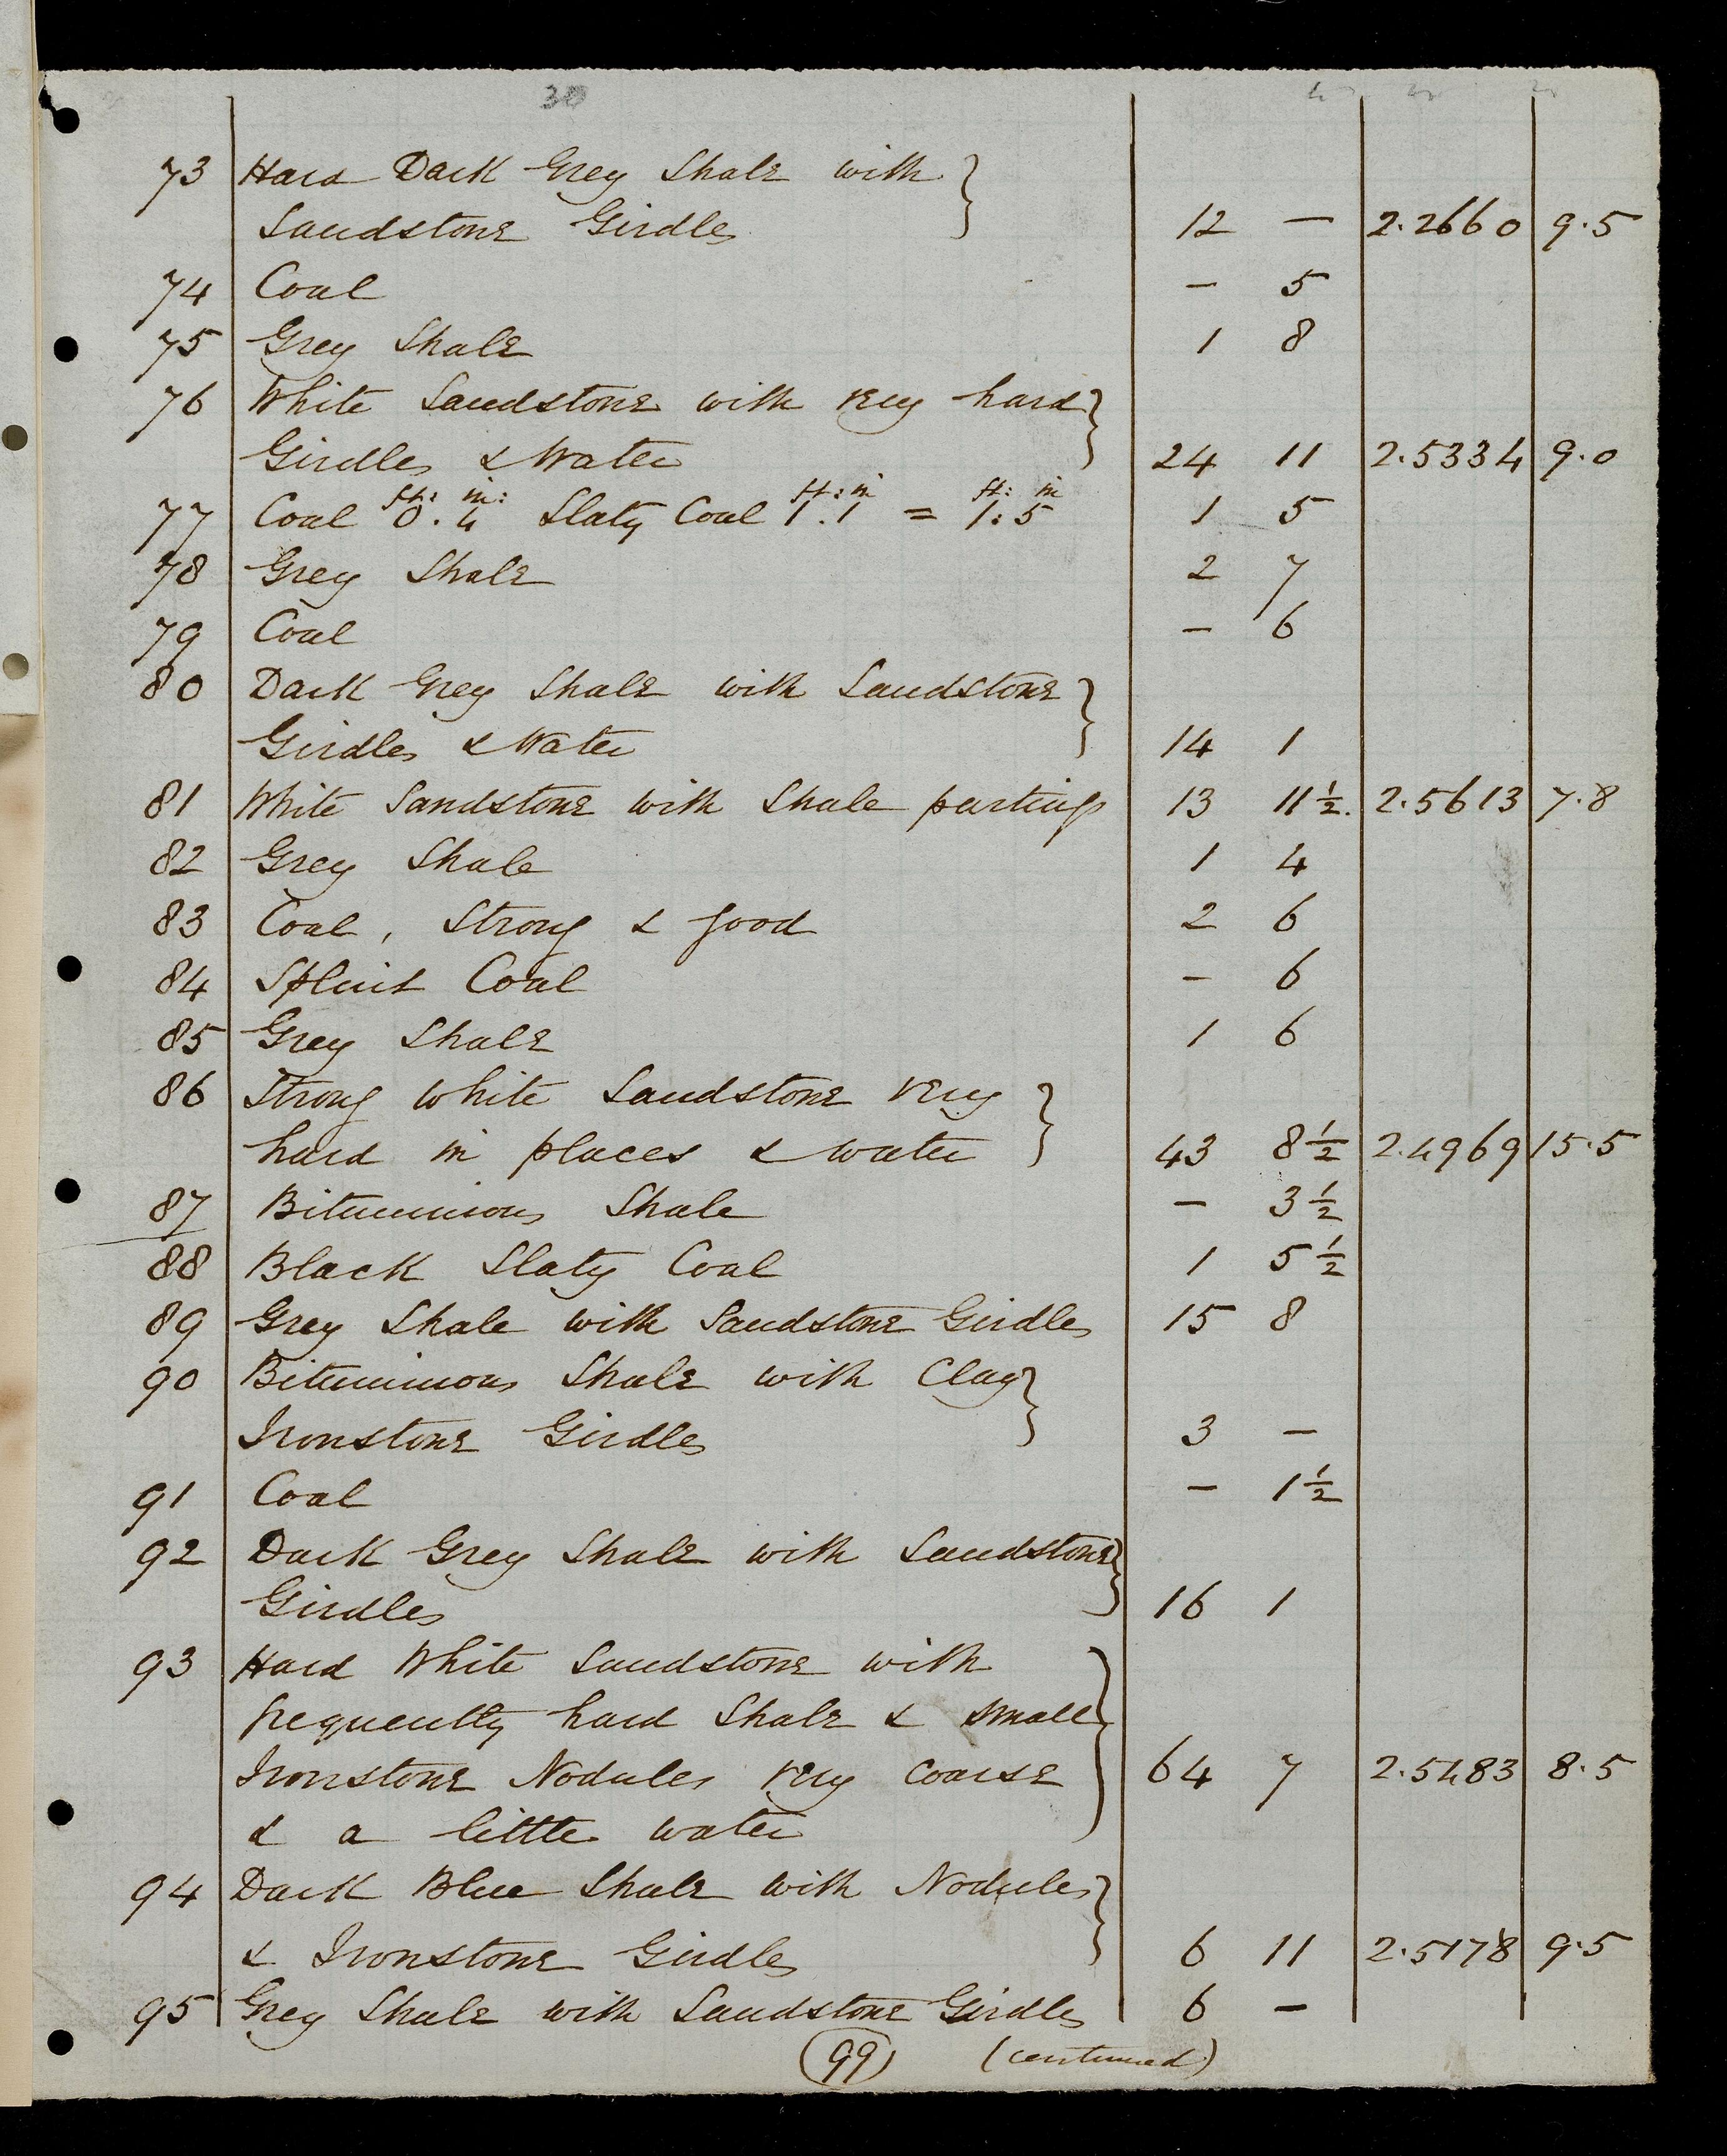 30
73 Hard Dark Grey Shale with
Sandstone Girdles 12 — 2.2660 9.5
74 Coal — 5
75 Grey Shale 1 8
76 White Sandstone with very hard
Girdles & Water 24 11 2.5334 9.0
ft: in: ft: in ft: in
77 Coal 0.4 Slaty Coal 1.1 = 1.5 1 5
78 Grey Shale 2 7
79 Coal — 6
80 Dark Grey Shale with Sandstone
Girdles & Water 14 1
81 White Sandstone with Shale partings 13 11½. 2.5613 7.8
82 Grey Shale 1 4
83 Coal, Strong & good 2 6
84 Splint Coal — 6
85 Grey Shale 1 6
86 Strong White Sandstone very
hard in places & water 43 8½ 2.4969 15.5
87 Bituminous Shale — 3½
88 Black Slaty Coal 1 5½
89 Grey Shale with Sandstone Girdles 15 8
90 Bituminous Shale with Clay
Ironstone Girdles 3 —
91 Coal — 1½
92 Dark Grey Shale with Sandstone
Girdles 16 1
93 Hard White Sandstone with
frequently hard Shale & small
Ironstone Nodules very coarse 64 7 2.5483 8.5
& a little water
94 Dark Blue Shale with Nodules
& Ironstone Girdles 6 11 2.5178 9.5
95 Grey Shale with Sandstone Girdles 6 —
99 (continued)